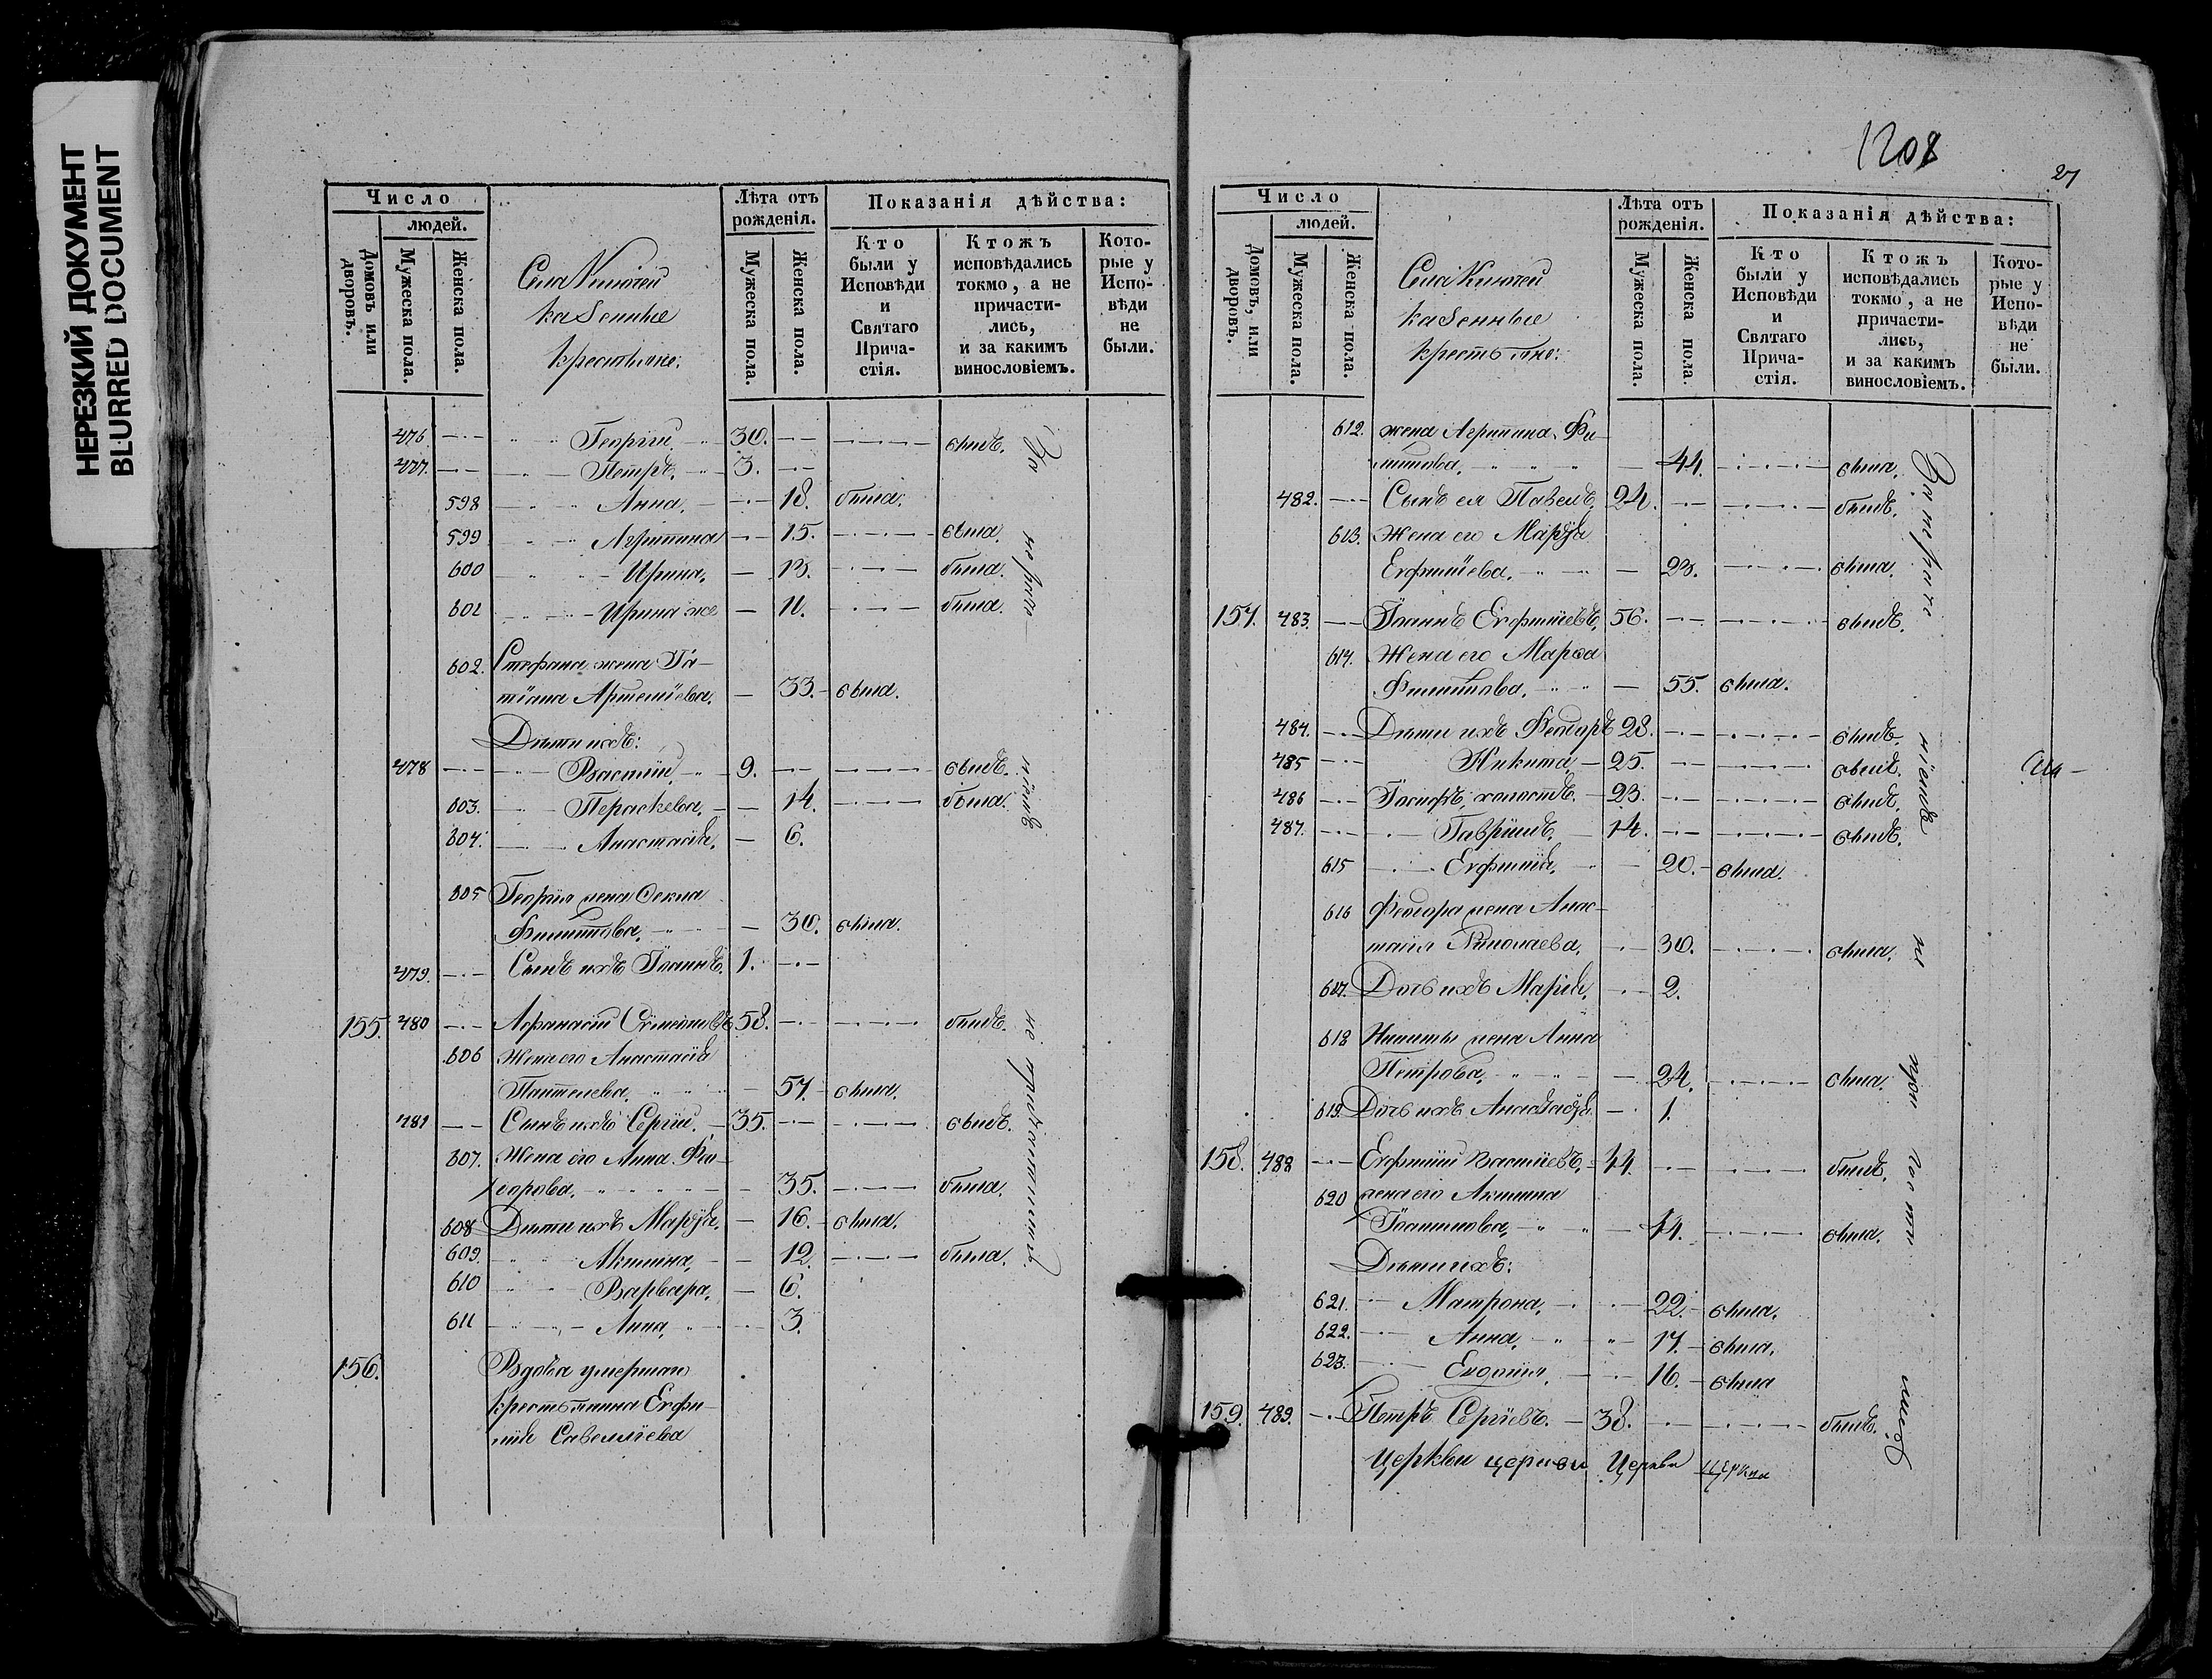 НЕРЕЗКИЙ ДОКУМЕНТ
BLURRED DOCUMENT
Число
людей.
Домовъ или дворовъ.
Мужеска пола.
Женска пола.
Села
казенные
крестьяне:
Лѣта отъ рожденія.
Мужеска пола.
Женска пола.
Показанія дѣйства:
Кто были у Исповѣди и Святаго Прича-стія.
Ктожъ исповѣдались токмо, а не причасти-лись, и за какимъ винословіемъ.
Кото-рые у Испо-вѣди не были.
476 Георгій 30. былъ.
477. Петръ, 3.
598 Анна, 18. была.
599 Агрипина 15. была.
600 Ирина, 13. была.
601 Ирина же 11. была.
602. Стефана жена Та-
тіана Артеміева. 33. была.
Дѣти ихъ:
478 Василій, 9. былъ.
603. Параскева, 14. была.
604. Анастасія, 6.
605 Георгія жена Ѳекла
Филиппова, 30. была.
479. Сынъ ихъ Іоаннъ, 1.
155. 480 Афанасій 58. былъ.
606 Жена его Анастасія
Пантелеева, 57. была.
481 Сынъ ихъ Сергій, 35. былъ.
607. Жена его Анна Фео-
дорова, 35. была.
608 Дѣти ихъ Марѳа, 16. была.
609. Акилина, 12. была.
610 Варвара, 6.
611 Анна, 3.
156. Вдова умершаго
крестьянина Евфи-
мія Савелліева
За нераде-
ніемъ
не причастились
1208
27
Число
людей.
Домовъ, или дворовъ.
Мужеска пола.
Женска пола.
Села
казенные
крестьяне:
Лѣта отъ рожденія.
Мужеска пола.
Женска пола.
Показанія дѣйства:
Кто были у Исповѣди и Святаго Прича-стія.
Ктожъ исповѣдались токмо, а не причасти-лись, и за какимъ винословіемъ.
Кото-рые у Испо-вѣди не были.
612. жена Агрипина Фи-
липпова, 44. была.
482. Сынъ ея Павелъ, 24. былъ.
613. Жена его Марѳа
Евфиміева, 23. была.
157. 483. Іоаннъ Евфиміевъ, 56. былъ.
614. Жена его Марѳа
Филиппова, 55. была.
484. Дѣти ихъ Феодоръ 28. былъ.
485 Никита, 25. былъ.
486 Іосифъ, холостъ, 23. былъ.
487. Гавріилъ, 14. былъ.
615 Евфимія, 20. была.
616 Феодора жена Анас-
тасія Николаева, 30. была.
617. Дочь ихъ Марія, 2.
618 Никиты жена Анна
Петрова, 24. была.
619. Дочь ихъ 1.
158. 488 Евфимій Васіліевъ, 44. былъ.
620 жена его Акилина
Іоаннова, 44. была.
Дѣти ихъ:
621. Матрона, 22. была.
622. Анна, 17. была.
623. Евдокія, 16. была
159. 489. Петръ Сергіевъ. 38. былъ.
Церкви церкви Церкви церкви
За нераде
ніемъ не при час ти
лись